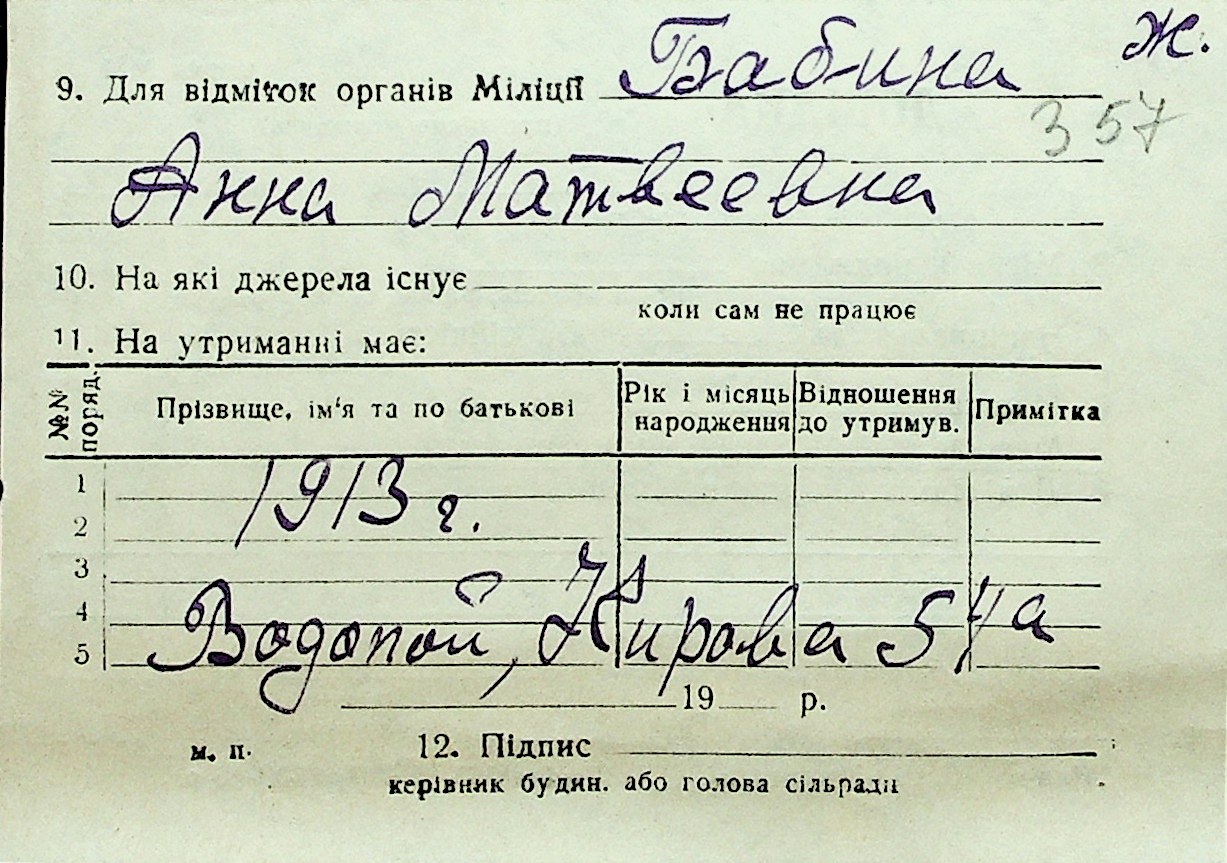 Ж.
9. Для відміток органів Міліції Бабина
357
Анна Матвеевна
10. На які джерела існує
коли сам не працює
11. На утриманні має:
№№ поряд. Прізвище, ім'я та по батькові Рік і місяць народження Відношення до утримув. Примітка
1
1913 г.
2
3
4
Водопой, Кирова 54а
5
19 р.
м. п. 12. Підпис
керівник будин. або голова сільради